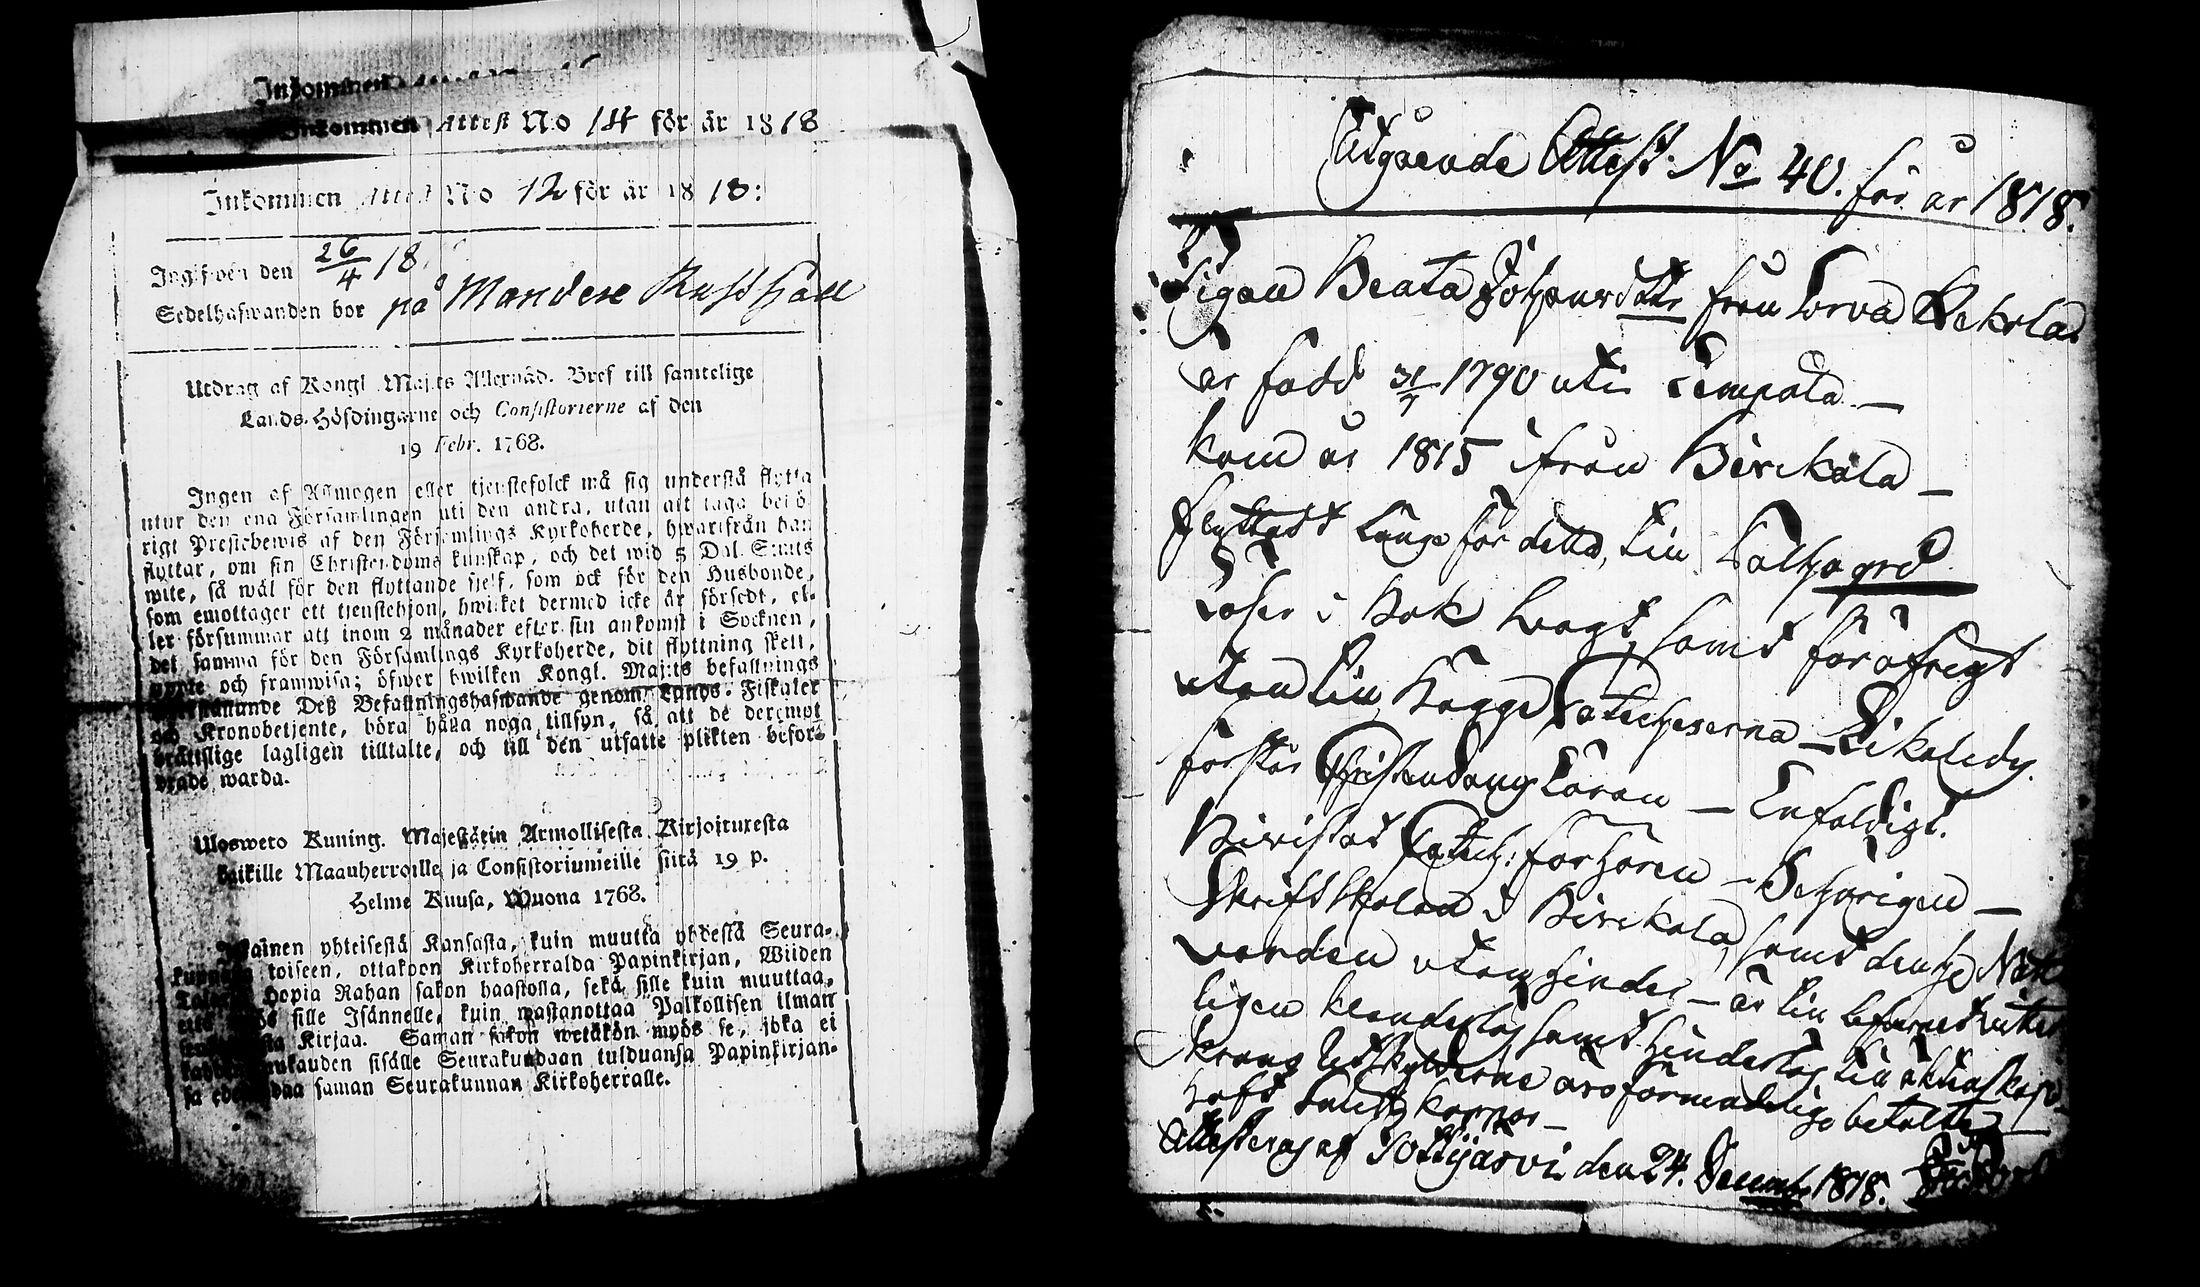 Inkommen
Inkommen Attest No 14 för år 1818
Inkommen Attest No 12 för år 1818:
Ingifwen den 26/4 18
Sedelhafwanden bor på Mandere Rusthåll
Utdrag af Kongl. Maj:ts Allernåd. Bref till samtelige
Lands-Höfdingarne och Consistorierne af den
19 Febr. 1768.
Ingen af Allmogen eller tjenstefolck må sig understå flytta
utur den ena Församlingen uti den andra, utan att taga behö-
rigt Prestebewis af den Församlings Kyrkoherde, hwarifrån han
flyttar, om sin Christendoms kunskap, och det wid 5 Dal. Smts
wite, så wäl för den flyttande sjelf, som ock för den Husbonde,
som emottager ett tjenstehjon, hwilket dermed icke är försedt, el-
ler försummar att inom 2 månader efter sin ankomst i Socknen,
det samma för den Församlings Kyrkoherde, dit flyttning skett,
och framwisa; öfwer hwilken Kongl. Maj:ts befallnings
Deß Befallningshafwande genom Lands-Fiskaler
och Kronobetjente, böra hålla noga tillsyn, så att de deremot
bråttslige lagligen tilltalte, och till den utsatte plikten beford-
rade warda.
Ulosweto Kuning. Majestätin Armollisesta Kirjoituresta
kaikille Maanherroille ja Consistoriumeille siitä 19 p.
Helme Kuusa, Wuona 1768.
Jokainen yhteisestä Kansasta, kuin muutta yhdestä Seura-
kunnasta toiseen, ottakoon Kirkoherralda Papinkirjan, Wiiden
Hopia Rahan sakon haastolla, sekä sille kuin muuttaa,
että myös sille Isännelle, kuin wastanottaa Palkollisen ilman
Kirjaa. Saman sakon wetäkön myös se, joka ei
kahden kuukauden sisälle Seurakundaan tulduansa Papinkirjan-
sa saman Seurakunnan Kirkoherralle.
Utgående Attest No 40. för år 1818.
Pigan Beata Johansdottr från Sorva Kekola
är född 31/7 1790 uti Lempälä —
kom år 1815 ifrån Birckala —
flyttadt länge för detta, till
Läser i Bok swagt, samt för öfrigt
utantill, bägge Catecheserna —
förstår Christendoms Läran — Enfaldigt.
Bivistat Catech: förhören — Behörigen —
Skriftskolan i Birckala, samt dess H. Natt-
varden utan hinder — är till
ligen klanderlös samt hinderlös till äktenskap —
krono utskylderne äro förmodeligen betalte —
haft skyddskoppor —
Attesteras af Tottijärvi den 24. Decemb. 1818.